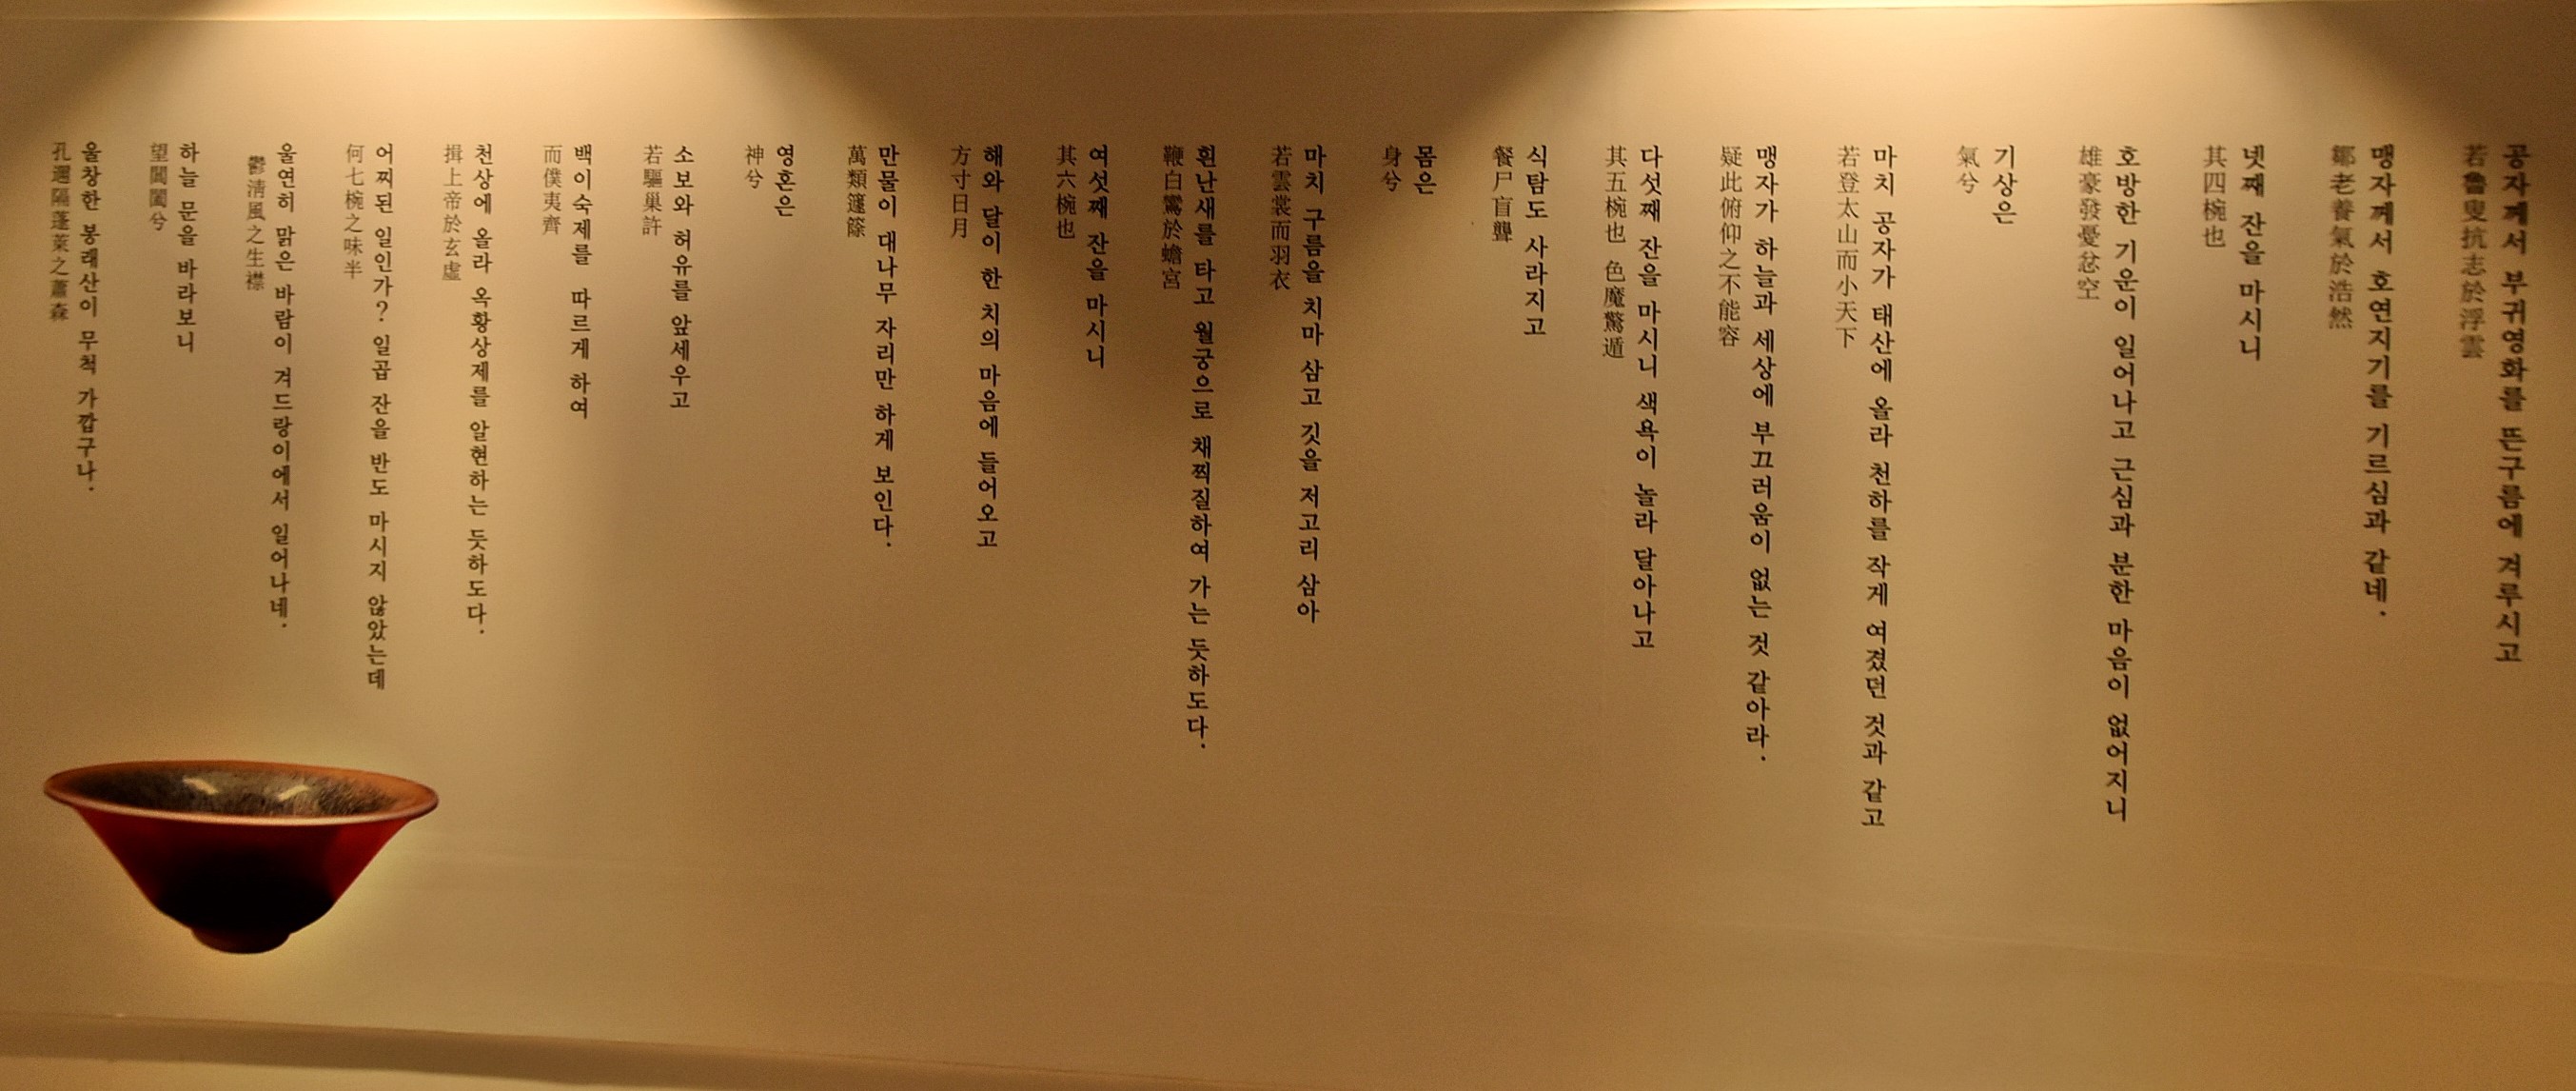 공자께서 부귀영화를 뜬구름에 겨루시고
若魯叟抗志於浮雲
맹자께서 호연지기를 기르심과 같네.
鄒老養氣於浩然
넷째 잔을 마시니
其四椀也
호방한 기운이 일어나고 근심과 분한 마음이 없어지니
雄豪發憂忿空
기상은
氣兮
마치 공자가 태산에 올라 천하를 작게 여겼던 것과 같고
若登太山而小天下
맹자가 하늘과 세상에 부끄러움이 없는 것 같아라.
疑此俯仰之不能容
다섯째 잔을 마시니 색욕이 놀라 달아나고
其五椀也 色魔驚遁
식탐도 사라지고
餐尸盲聾
몸은
身兮
마치 구름을 치마 삼고 깃을 저고리 삼아
若雲裳而羽衣
흰난새를 타고 월궁으로 채찍질하여 가는 듯하도다.
鞭白鸞於蟾宮
여섯째 잔을 마시니
其六椀也
해와 달이 한 치의 마음에 들어오고
方寸日月
만물이 대나무 자리만 하게 보인다.
萬類籧篨
영혼은
神兮
소보와 허유를 앞세우고
若驅巢許
백이숙제를 따르게 하여
而僕夷齊
천상에 올라 옥황상제를 알현하는 듯하도다.
揖上帝於玄虛
어찌된 일인가? 일곱 잔을 반도 마시지 않았는데
何七椀之味半
울연히 맑은 바람이 겨드랑이에서 일어나네.
鬱淸風之生襟
하늘 문을 바라보니
望閶闔兮
울창한 봉래산이 무척 가깝구나.
孔邇隔蓬萊之蕭森